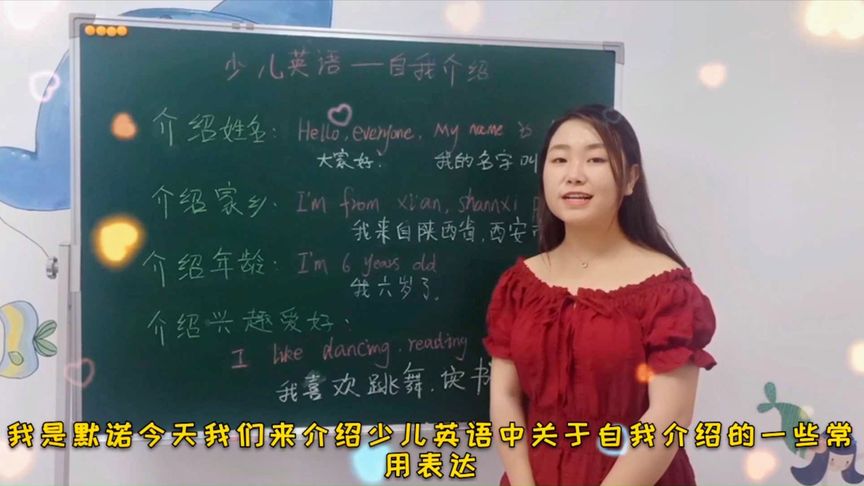 少儿英语—自我介绍
介绍姓名: Hello, everyone. My name is
大家好! 我的名字叫
介绍家乡: I'm from xi'an, shannxi
我来自陕西省,西安
介绍年龄: I'm 6 years old
我六岁了.
介绍兴趣爱好:
I like dancing, reading
我喜欢跳舞,读书
我是默诺今天我们来介绍少儿英语中关于自我介绍的一些常
用表达